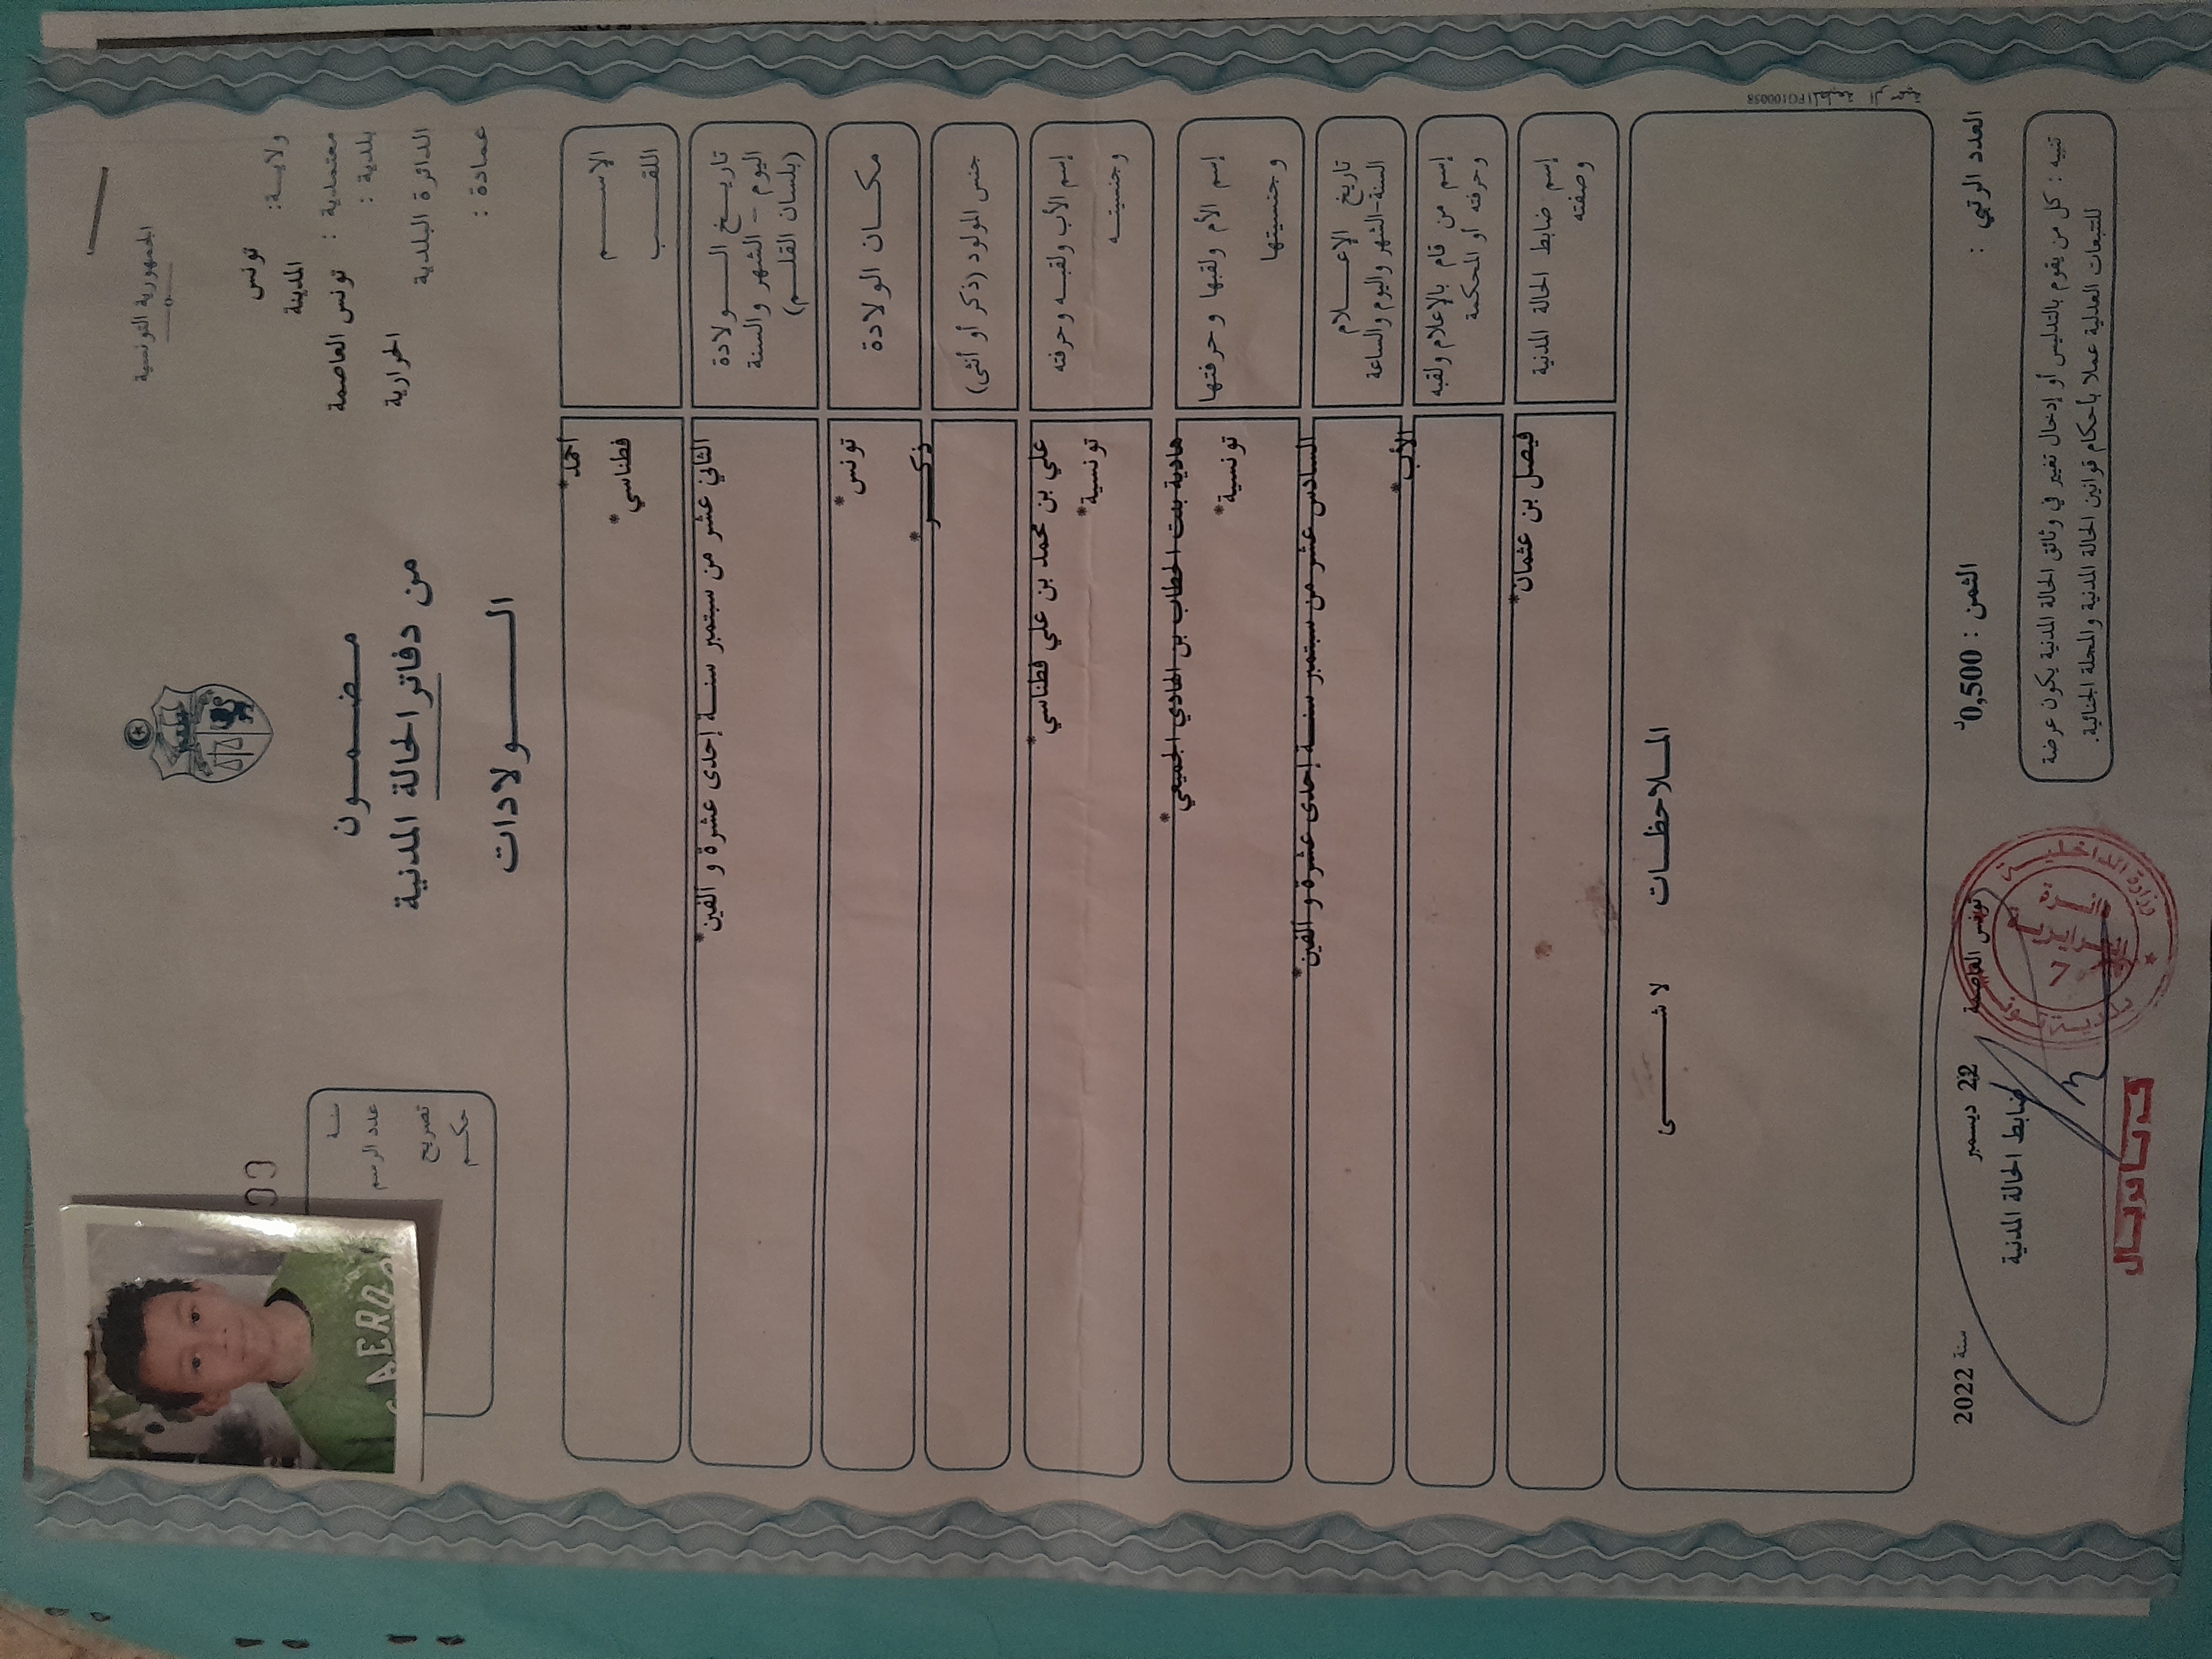 الجمهورية التونسية
ولايـة:
تونس
معتمدية :
المدينة
بلدية :
تونس العاصمة
الدائرة البلدية
الحرارية
عمادة :
مضمـــون
من دفاتر الحالة المدنية
الـــولادات
سنـة
عدد الرسم
تصريح
حكـم
AERO
الإســـم
أحمد*
اللقـــب
فطناسي*
تاريـخ الــولادة
اليوم - الشهر والسنة
(بلسان القلـم)
الثاني عشر من سبتمبر سنـة إحدى عشرة و الفين*
مكـان الولادة
تونس*
جنس المولود (ذكر أو أنثى)
ذكـــر*
إسم الأب ولقبـه وحرفته
علي بن محمد بن علي فطناسي*
وجنسيتـه
تونسية*
إسم الأم ولقبها وحرفتها
هادية بنت الحطاب بن الهادي الجميعي*
وجنسيتها
تونسية*
تاريخ الإعـلام
السنة-الشهر واليوم والساعة
السادس عشر من سبتمبر سنـة إحدى عشرة و الفين*
إسم من قام بالإعلام ولقبه
وحرفته أو المحكمة
الأب*
إسم ضابط الحالة المدنية
وصفته
فيصل بن عثمان*
الملاحظـات
لا شـــــى
العدد الرتبي :
الثمن : 0,500د
تونس العاصمة
22 ديسمبر
سنة 2022
ضابط الحالة المدنية
وزارة الداخليـة
بلديـة تونـس
تنبيه : كل من يقوم بالتدليس أو إدخال تغيير في وثائق الحالة المدنية يكون عرضة
للتتبعات العدلية عملا بأحكام قوانين الحالة المدنية والمجلة الجنائية.